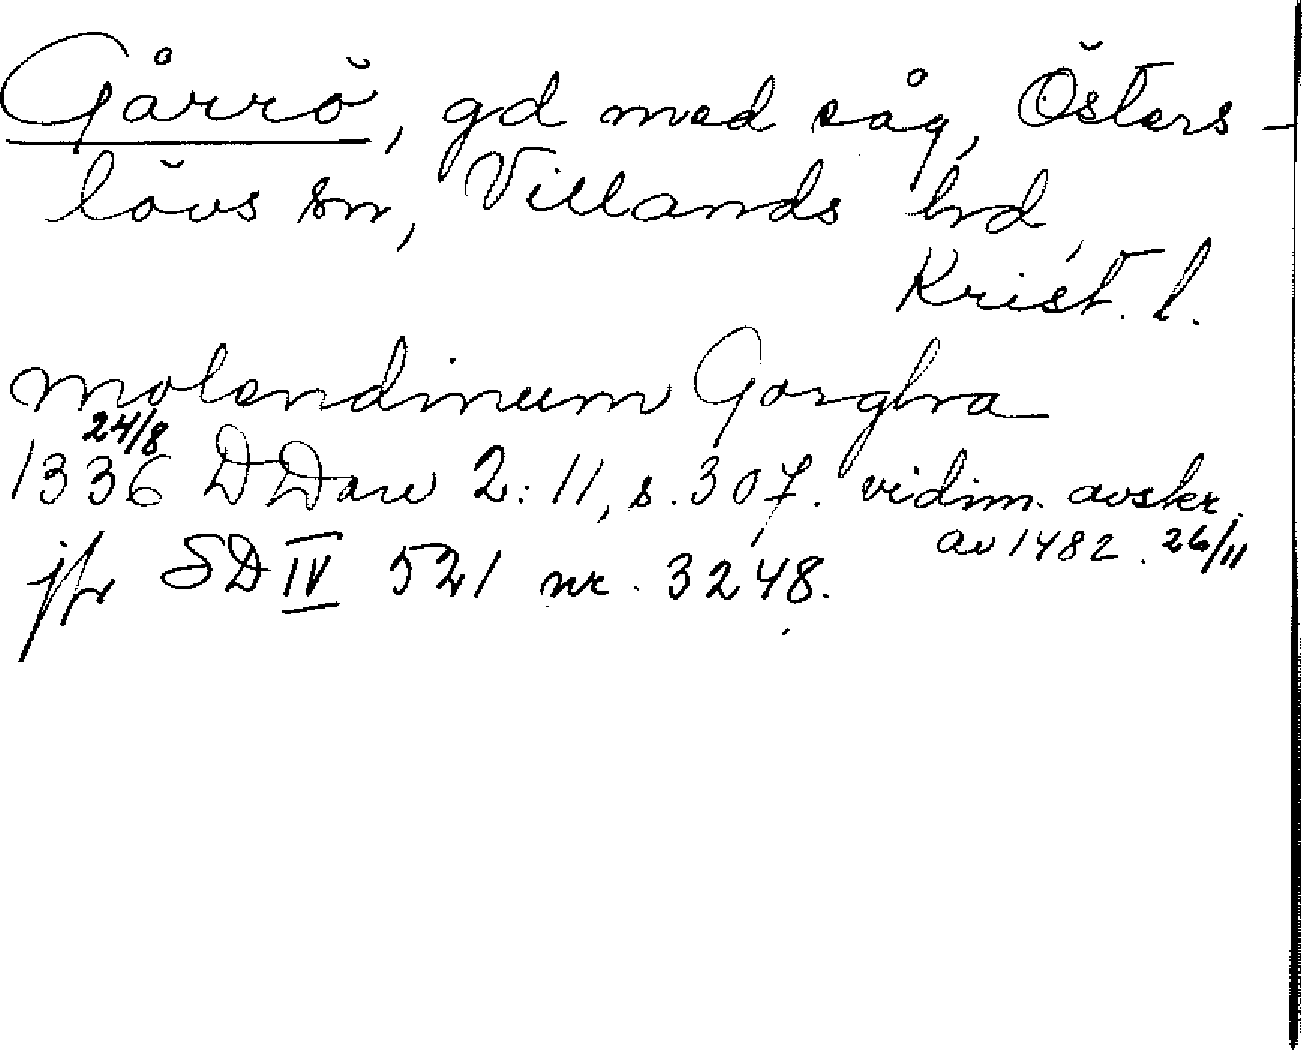 Gårrö, gd med såg, Östers-
lövs sn, Villands hd,
Krist. l.
molendinum Gorghra
24/8
1336 DDan 2:11, s. 307. vidim. avskr.
av 1482. 26/11
jfr SD IV 521 nr. 3248.